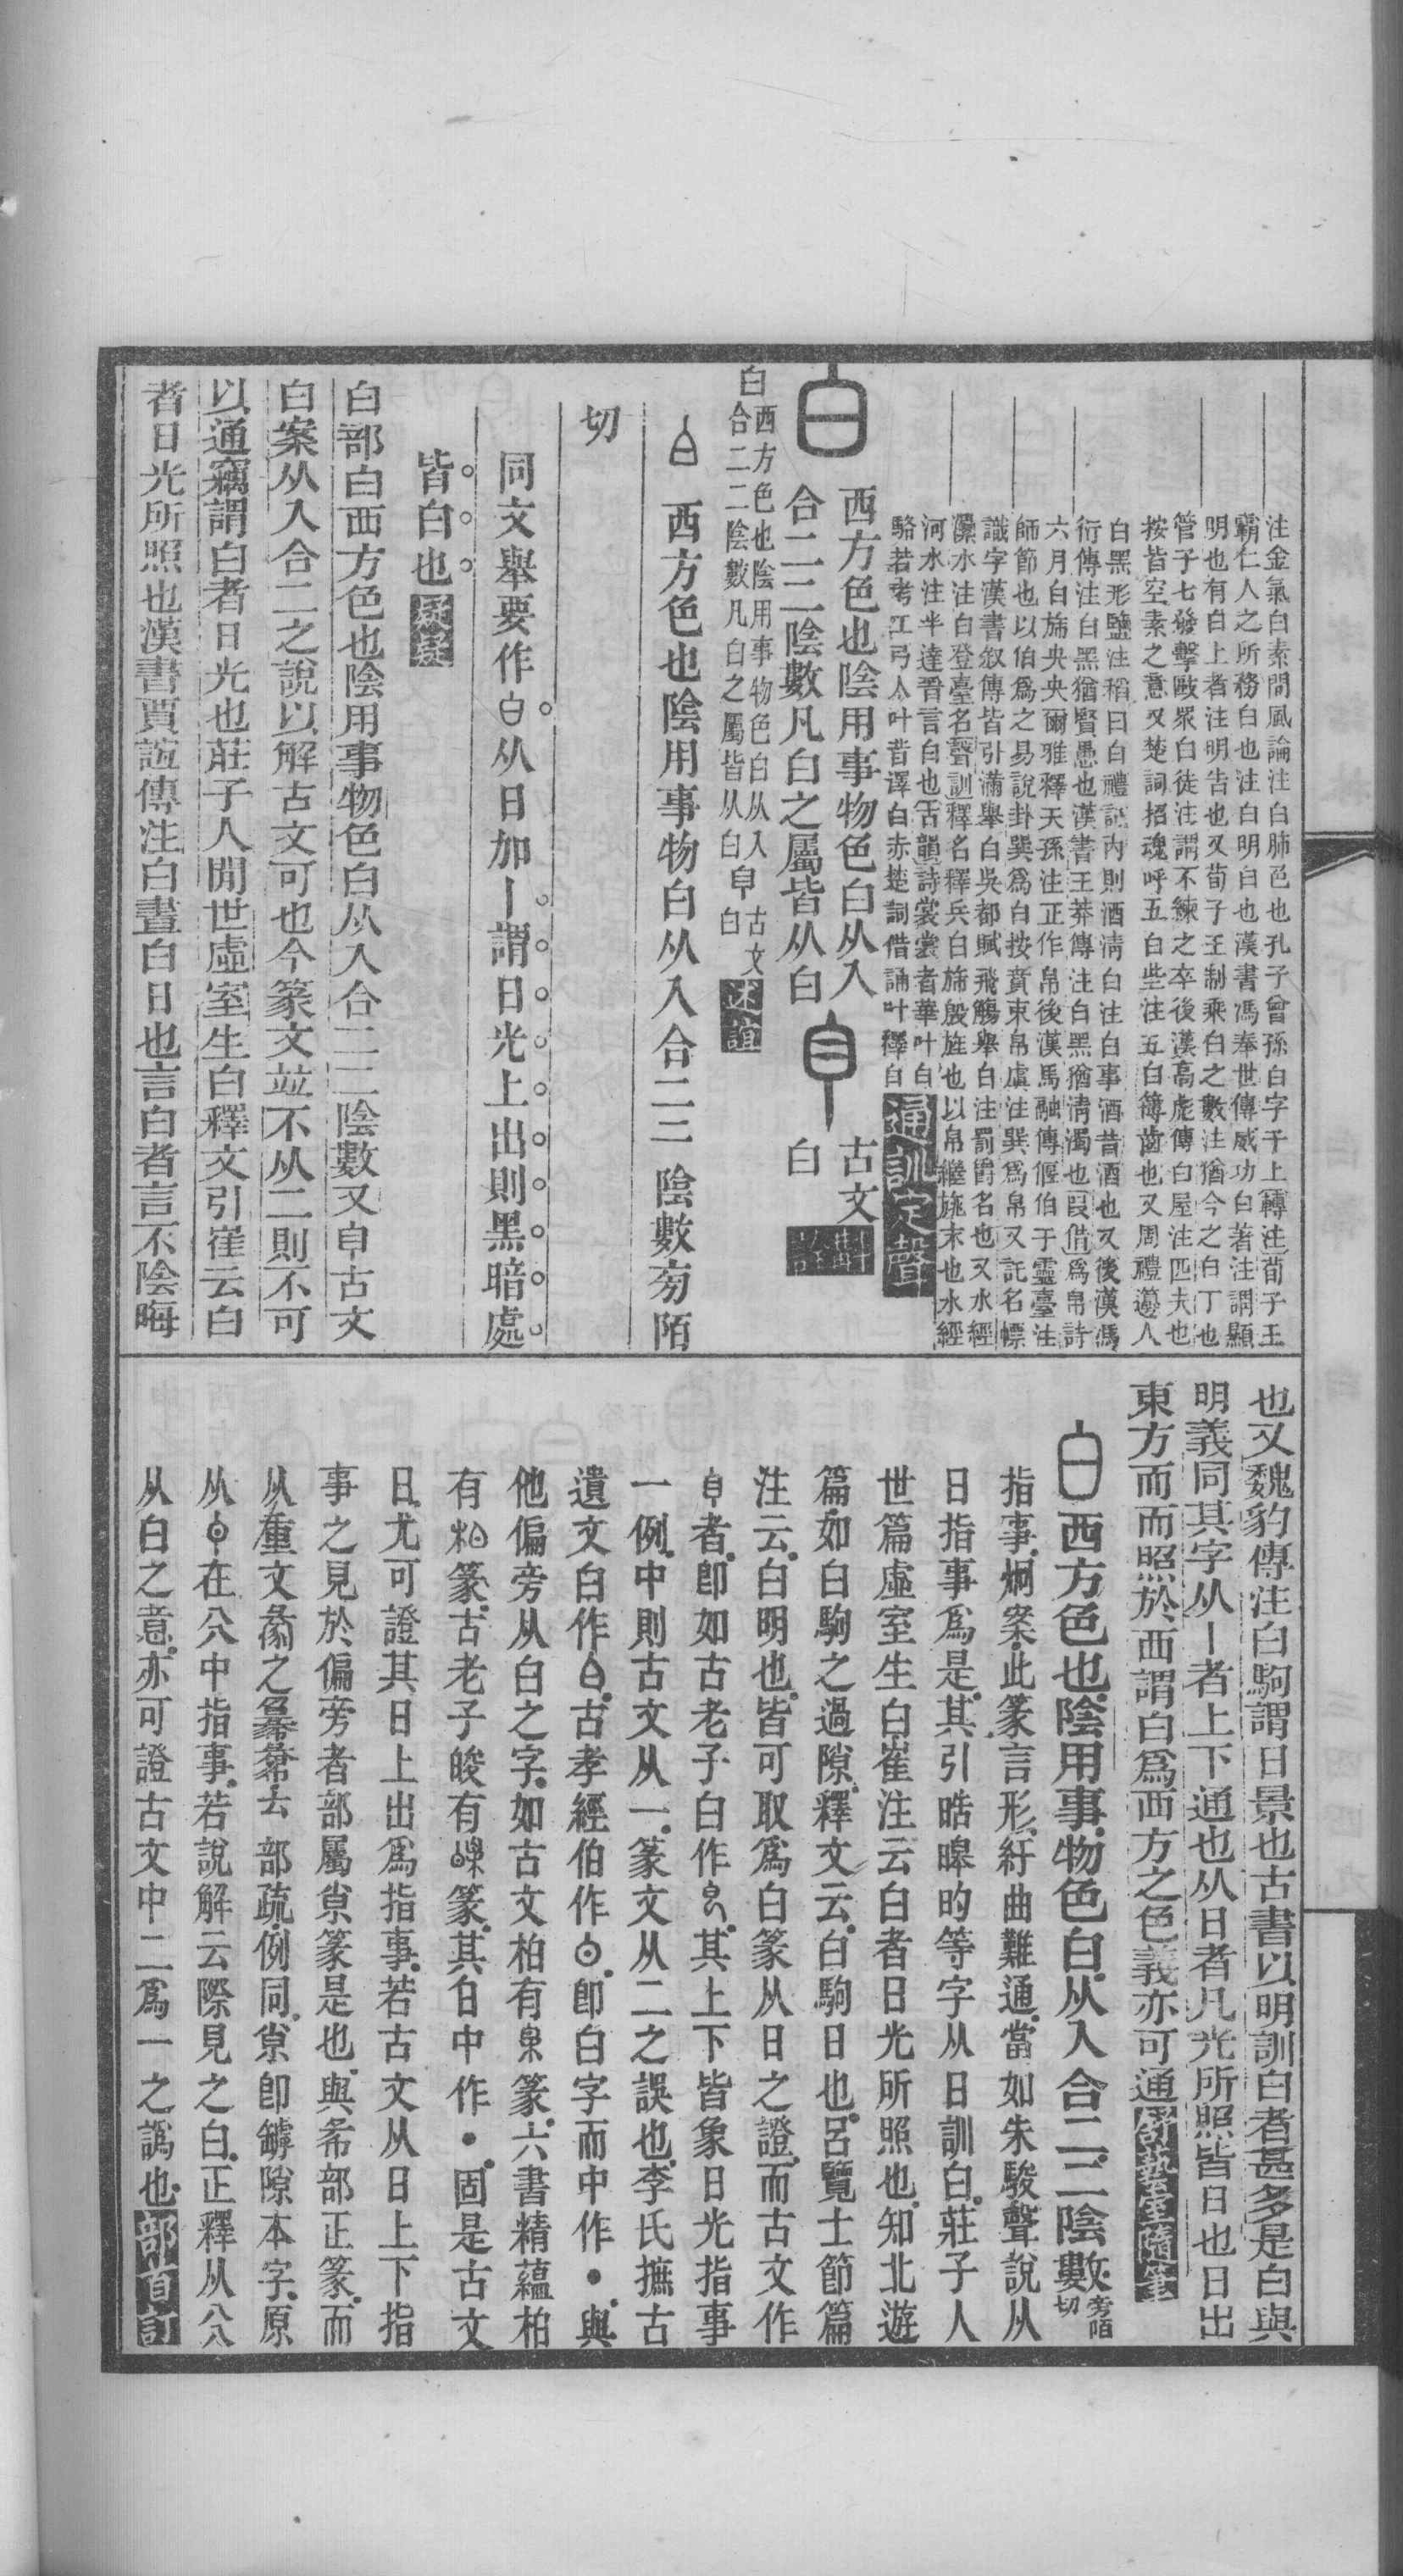 注金氣白素問風論注白肺色也孔子曾孫白字子上轉注荀子王
霸仁人之所務白也注白明白也漢書馮奉世傳威功白著注謂顯
明也有白上者注明告也又荀子王制乘白之數注猶今之白丁也
管子七發擊敺眾白徒注謂不練之卒後漢高彪傳白屋注匹夫也
按皆空素之意又楚詞招魂呼五白些注五白簿齒也又周禮籩人
白黑形鹽注稻曰白禮記內則酒清白注白事酒昔酒也又後漢馮
衍傳注白黑猶賢愚也漢書王莽傳注白黑猶清濁也叚借爲帛詩
六月白旆央央爾雅釋天孫注正作帛後漢馬融傳偃伯于靈臺注
師節也以伯爲之易說卦巽爲白按賁束帛虞注巽爲帛又託名幖
識字漢書敘傳皆引滿舉白吳都賦飛觴舉白注罰爵名也又水經
灅水注白登臺名聲訓釋名釋兵白旆殷旌也以帛繼旐末也水經
河水注半達晉言白也古韻詩裳裳者華叶白
駱若考工弓人叶昔澤白赤楚詞借誦叶釋白通訓定聲
白 西方色也陰用事物色白从入
合二二陰數凡白之屬皆从白 古文
白
白西方色也陰用事物色白从入
合二二陰數凡白之屬皆从白 古文
白述誼
白 西方色也陰用事物白从入合二二陰數旁陌
切
同文舉要作白从日加丨謂日光上出則黑暗處
皆白也
白部白西方色也陰用事物色白从入合二二陰數又古文
白案从入合二之說以解古文可也今篆文竝不从二則不可
以通竊謂白者日光也莊子人閒世虛室生白釋文引崔云白
者日光所照也漢書賈誼傳注白晝白日也言白者言不陰晦
也又魏豹傳注白駒謂日景也古書以明訓白者甚多是白與
明義同其字从丨者上下通也从日者凡光所照皆日也日出
東方而而照於西謂白爲西方之色義亦可通
白 西方色也陰用事物色白从入合二二陰數旁陌切
指事炯案此篆言形紆曲難通當如朱駿聲說从
日指事爲是其引晧皞旳等字从日訓白莊子人
世篇虛室生白崔注云白者日光所照也知北遊
篇如白駒之過隙釋文云白駒日也呂覽士節篇
注云白明也皆可取爲白篆从日之證而古文作
者卽如古老子白作其上下皆象日光指事
一例中則古文从一篆文从二之誤也李氏摭古
遺文白作古孝經伯作卽白字而中作•與
他偏旁从白之字如古文柏有篆六書精蘊柏
有篆古老子皎有篆其白中作•固是古文
日尤可證其日上出爲指事若古文从日上下指
事之見於偏旁者部屬𡭴篆是也與㣇部正篆而
从重文之去部疏例同𡭴卽罅隙本字原
从在八中指事若說解云際見之白正釋从八八
从白之意亦可證古文中二爲一之譌也部首訂